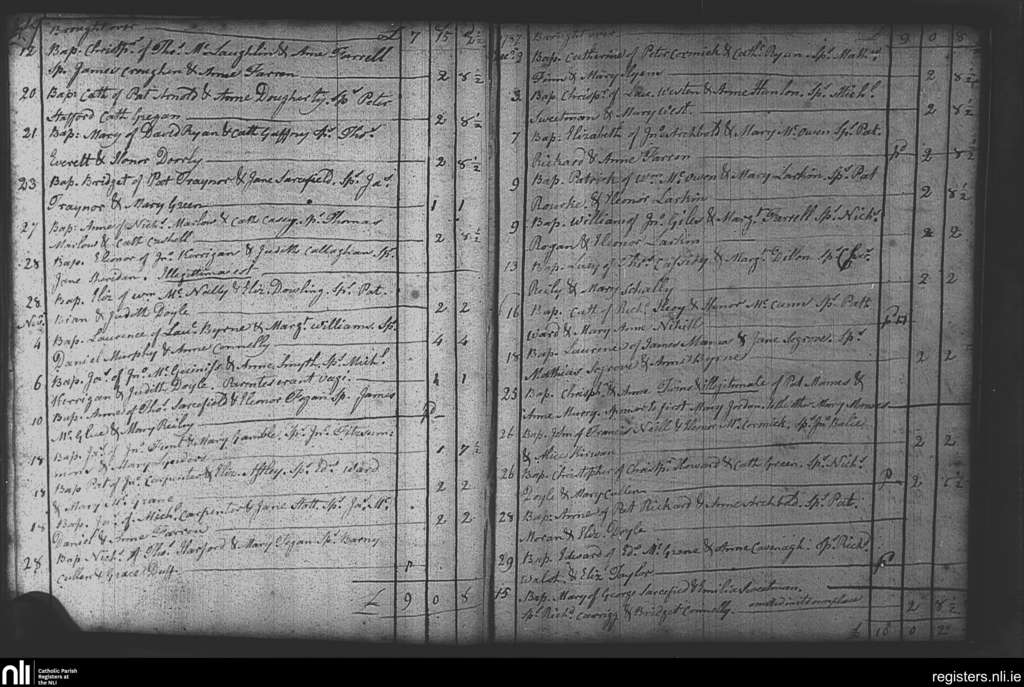 Brought over £ 7 15 2½
12 Bap: Chrisp.r of Tho.s McLaughlin & Anne Farrell
Sp. James Croughen & Anne Farron 2 8½
20 Bap: Cath of Pat Arnold & Anne Dougherty Sp.s Peter
Stafford Cath Gregan 2 8½
21 Bap: Mary of David Ryan & Cath Gaffny Sp.s Tho.s
Everett & Elonor Doorly 2 8½
23 Bap. Bridget of Pat Traynor & Jane Sarcefield. Sp.s Ja.s
Traynor & Mary Green 1 1
27 Bap: Anne of Nich.s Marlow & Cath Casey. Sp.s Thomas
Marlow & Cath Cushell 2 8½
28 Bap. Elonor of Jn.o Kerrigan & Judith Callaghan Sp.s
Jane Sheriden. Illegittima est
28 Bap. Eliz of Wm Mc Nally & Eliz. Dowling. Sp.s Pat.
Brian & Judith Doyle 2 2
Nov.r
4 Bap. Laurence of Law.s Byrne & Marg.t Williams. Sp.
Daniel Murphy & Anne Connelly 4 4
6 Bap. Ja.s of Jn.o McGuiniss & Anne Smyth. Sp.s Mich.l
Kerrigan & Judith Doyle. Parentes erant vagi. 1 1
10 Bap. Anne of Tho.s Sarcefield & Elenor Sp. James
Mc Glue & Mary Reiley p
18 Bap. Ja.s of Jn.o & Mary Gamble. Sp.s Jn.o Fitzsim
mons & Mary 1 7½
18 Bap Pat of Jn.o Carpenter & Eliz. Affley. Sp.s Ed.d Ward
& Mary Mc Grane 2 2
18 Bap. Ja.s of Mich.l Carpenter & Jane Stott. Sp.s Ja.s Mc
Daniel & Anne Farren 2 2
28 Bap. Nich.s of Tho.s Harford & Mary Sp.s Barny
Cullen & Grace Duff p
£ 9 0 8
1787 Brought over £ 9 0 8
3 Bap. Catherine of Peter Cormick & Cath.e Ryan. Sp.s Math.w
Finn & Mary 2 8½
3 Bap. Chrisp.r of Law. Weston & Anne Hanlon. Sp.s Mich.l
Sweetman & Mary West. 2 8½
7 Bap. Elizabeth of Jn.o Archbold & Mary Mc Owen Sp.s Pat.
Rickard & Anne Farren p.d 2 8½
9 Bap. Patrick of Wm. Mc Owen & Mary Larkin. Sp.s Pat
Rourke. & Elenor Larkin 2 8½
9 Bap. William of Jn.o Giles & Marg.t Farrell Sp.s Nich.s
Rogan & Elenor Larkin 2 2
13 Bap. Lucy of Tho.s Cassidy & Marg.t Dillon Sp.s
Reily & Mary Schally 2 2
16 Bap. Cath of Rich.d & Honor Mc Cann Sp.s Path
Ward & Mary Anne Nihill p
18 Bap. Laurence of James Mannus & Jane Segrove. Sp.s
Mathias Segrove & Anne Byrne 2 2
25 Bap. Chrisp.r & Anne Twins & illegitimate of Pat Mannes &
Anne Murry. Sponsor to first Mary Jordan. to the other Mary Monroes
26 Bap. John of Francis Neill & Elenor Mc Cormick. Sp.s Jn.o
& Alice Kirwan 2 2
26 Bap. Christopher of Chrisp.r Howard & Cath Green. Sp.s Nich.s
Doyle & Mary Cullen p 2
28 Bap. Anne of Pat Rickard & Anne Archbold. Sp.s Pat.
Moran & Eliz. Doyle
29 Bap. Edward of Ed.d Mc Grane & Anne Cavenagh. Sp.s Rich.d
Walsh & Eliz. Taylor p
15 Bap. Mary of George Sarcefield & Emilia Sweetman.
Sp.s Rich.d & Bridget Connelly. omitted in its own place 2 8½
£ 10 0 2
nli Catholic Parish
Registers at
the NLI
registers.nli.ie